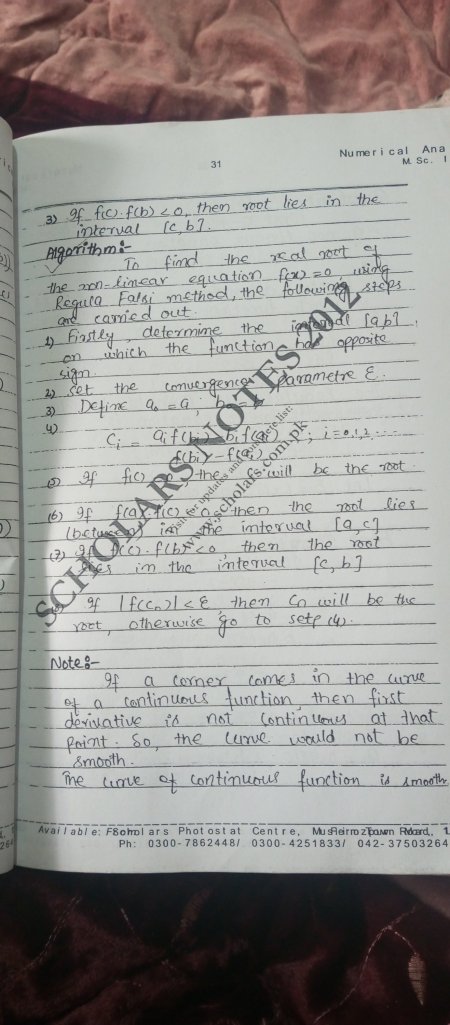 31
Numerical Ana
M. Sc. I
3) If f(c). f(b) < 0, then root lies in the
interval [c, b].
Algorithm:-
To find the real root of
the non-linear equation f(x) = 0, using
Regula Falsi method, the following steps
are carried out.
1) Firstly, determine the interval [a,b],
on which the function has opposite
sign.
2) Set the convergence parametre ε.
3) Define a₀ = a,
4)
Ci = ai f(bi) - bi f(ai) ; i = 0,1,2
f(bi) - f(ai)
(5) If f(c) the will be the root
(6) If f(a). f(c) < 0, then the root lies
(between) in the interval [a, c]
(7) If f(c). f(b) < 0, then the root
lies in the interval [c, b]
If |f(Cn)| < ε, then Cn will be the
root, otherwise go to setp (4).
Note:-
If a corner comes in the curve
of a continuous function, then first
derivative is not continuous at that
point. So, the curve would not be
smooth.
The curve of continuous function is smooth
SCHOLARS NOTES 2012
Visit for updates and complete list:
www.scholars.com.pk
Available: Scholars Photostat Centre,
Ph: 0300-7862448/ 0300-4251833/ 042-37503264